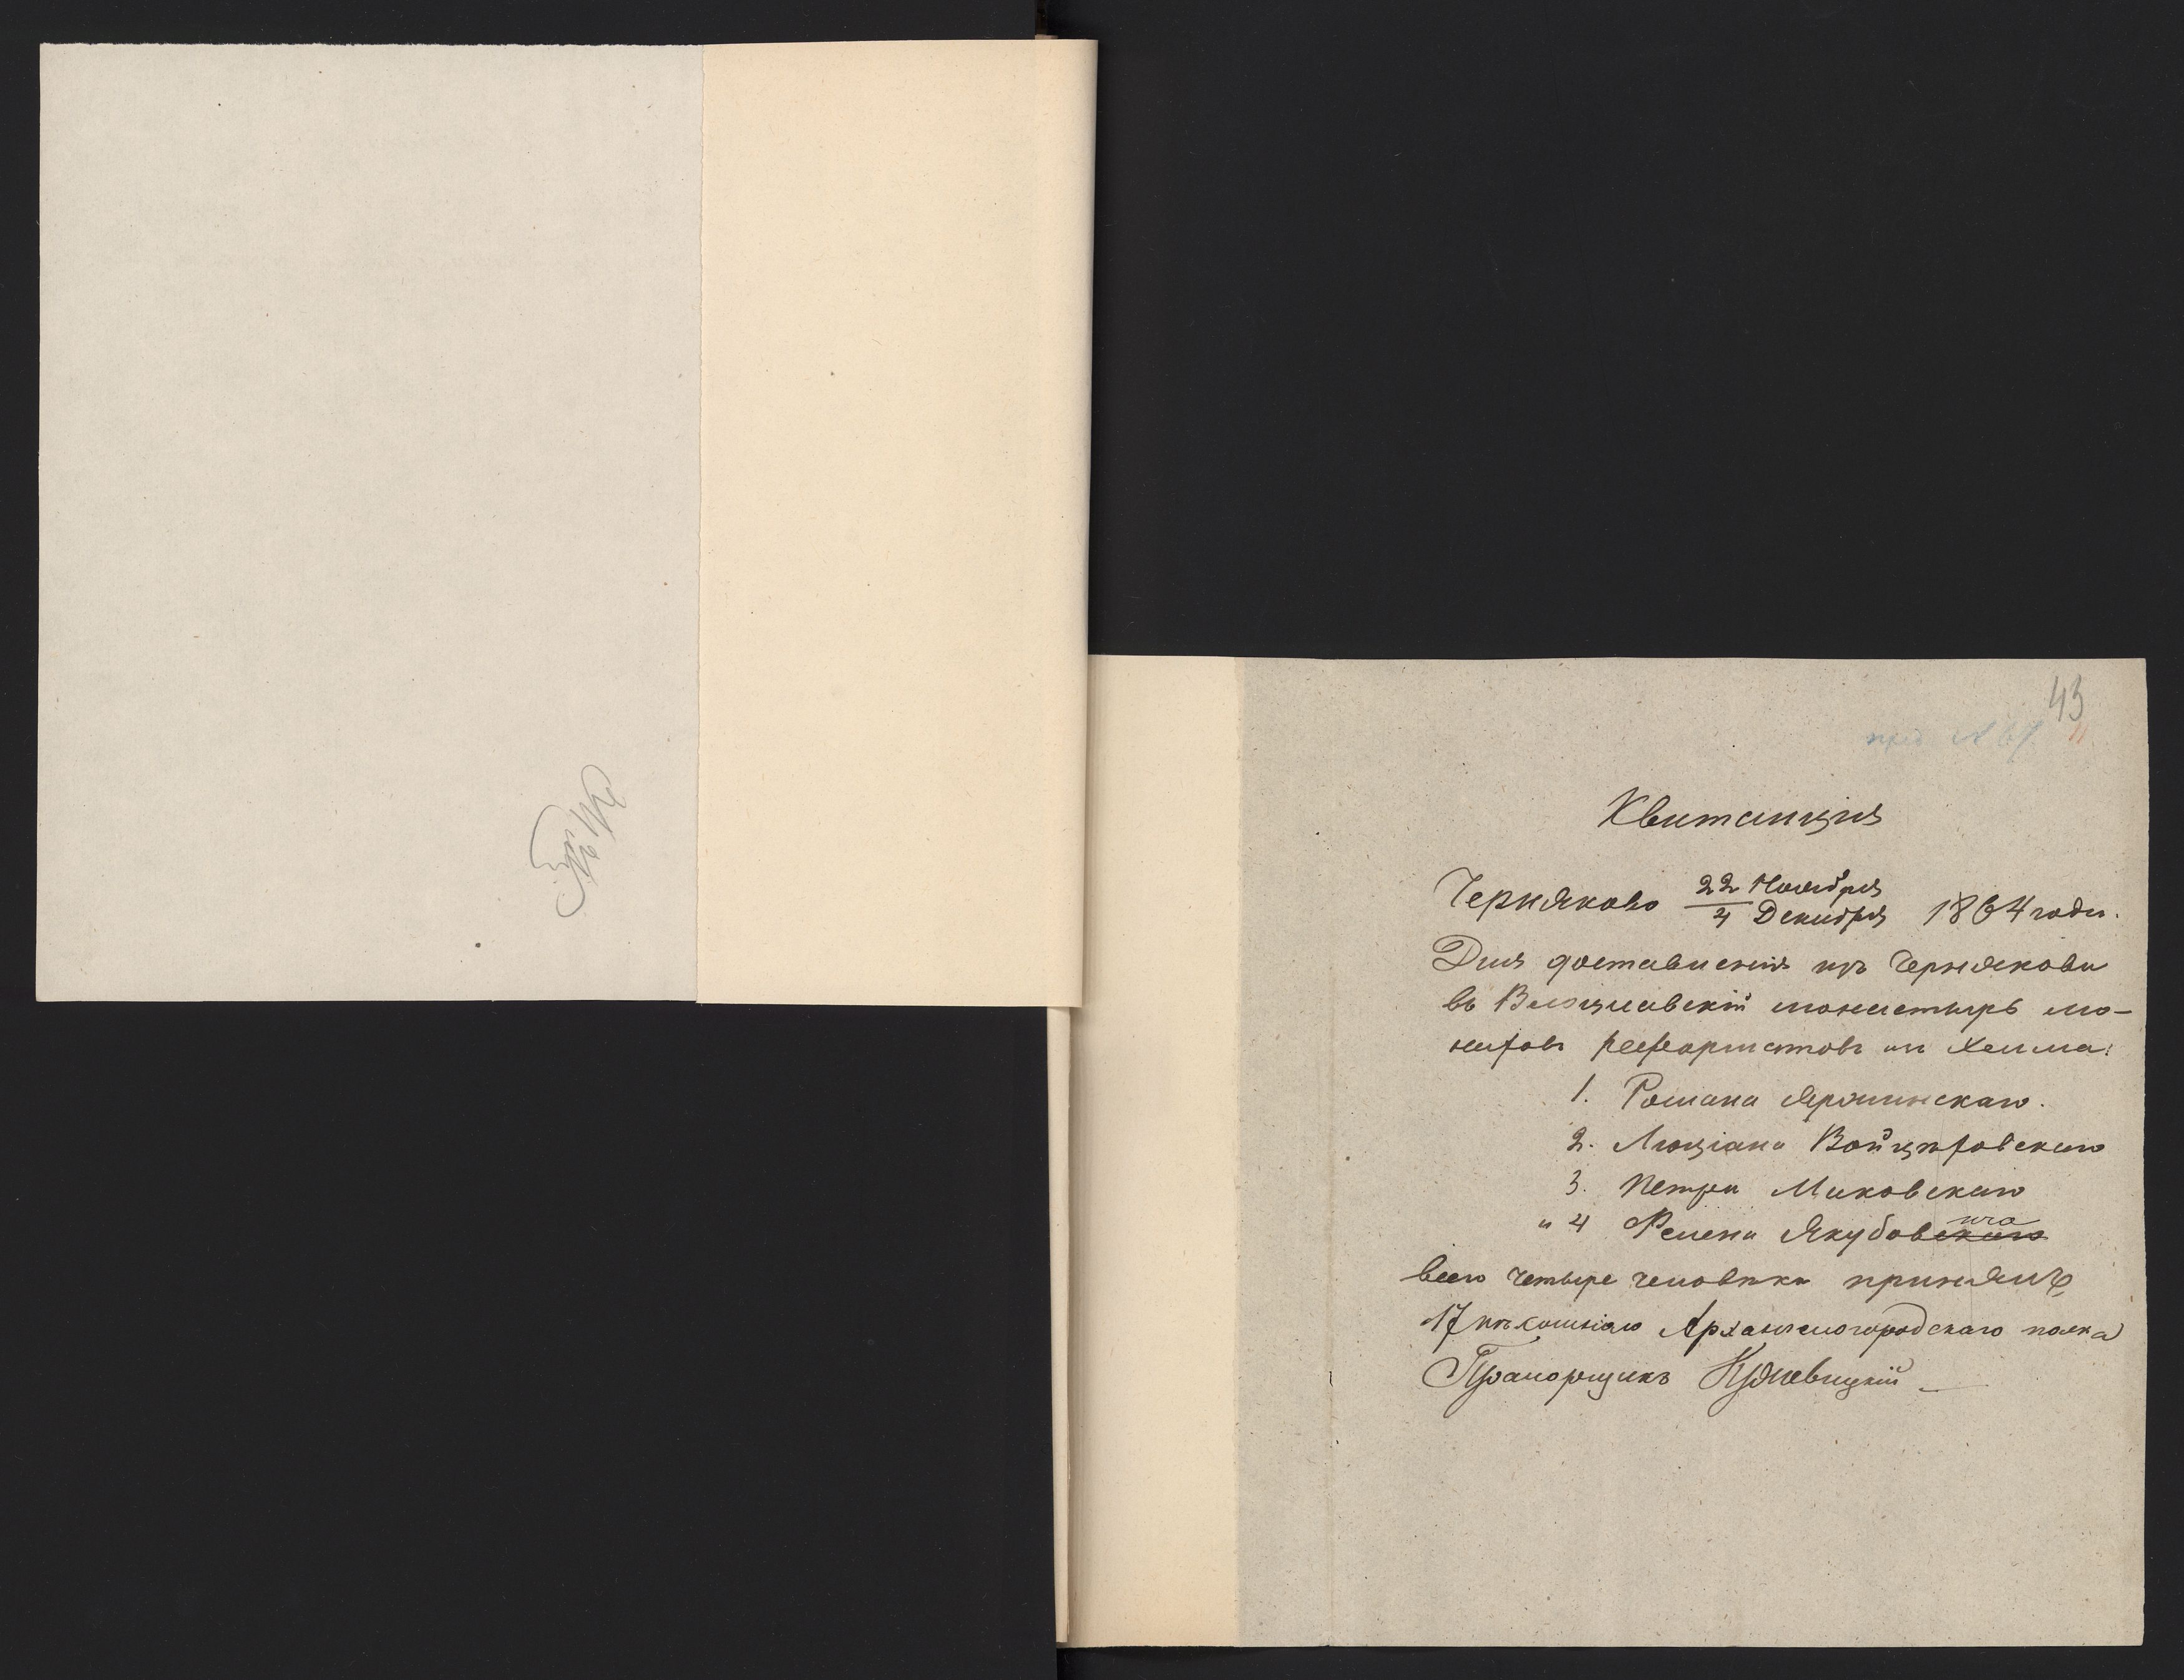 43
Квитанція
Черняково 22 Ноября / 4 Декабря 1864 года.
Для доставленія изъ Чернякова
въ монастырь мо-
наховъ реформатовъ изъ Хелма:
1. Романа Яроминскаго.
2. Люціана Войцѣховскаго
3. Петра Маковскаго
и 4 Якубовскаго
всего четыре человѣка принялъ
17 пѣхотнаго Архангелогородскаго полка
Прапорщикъ